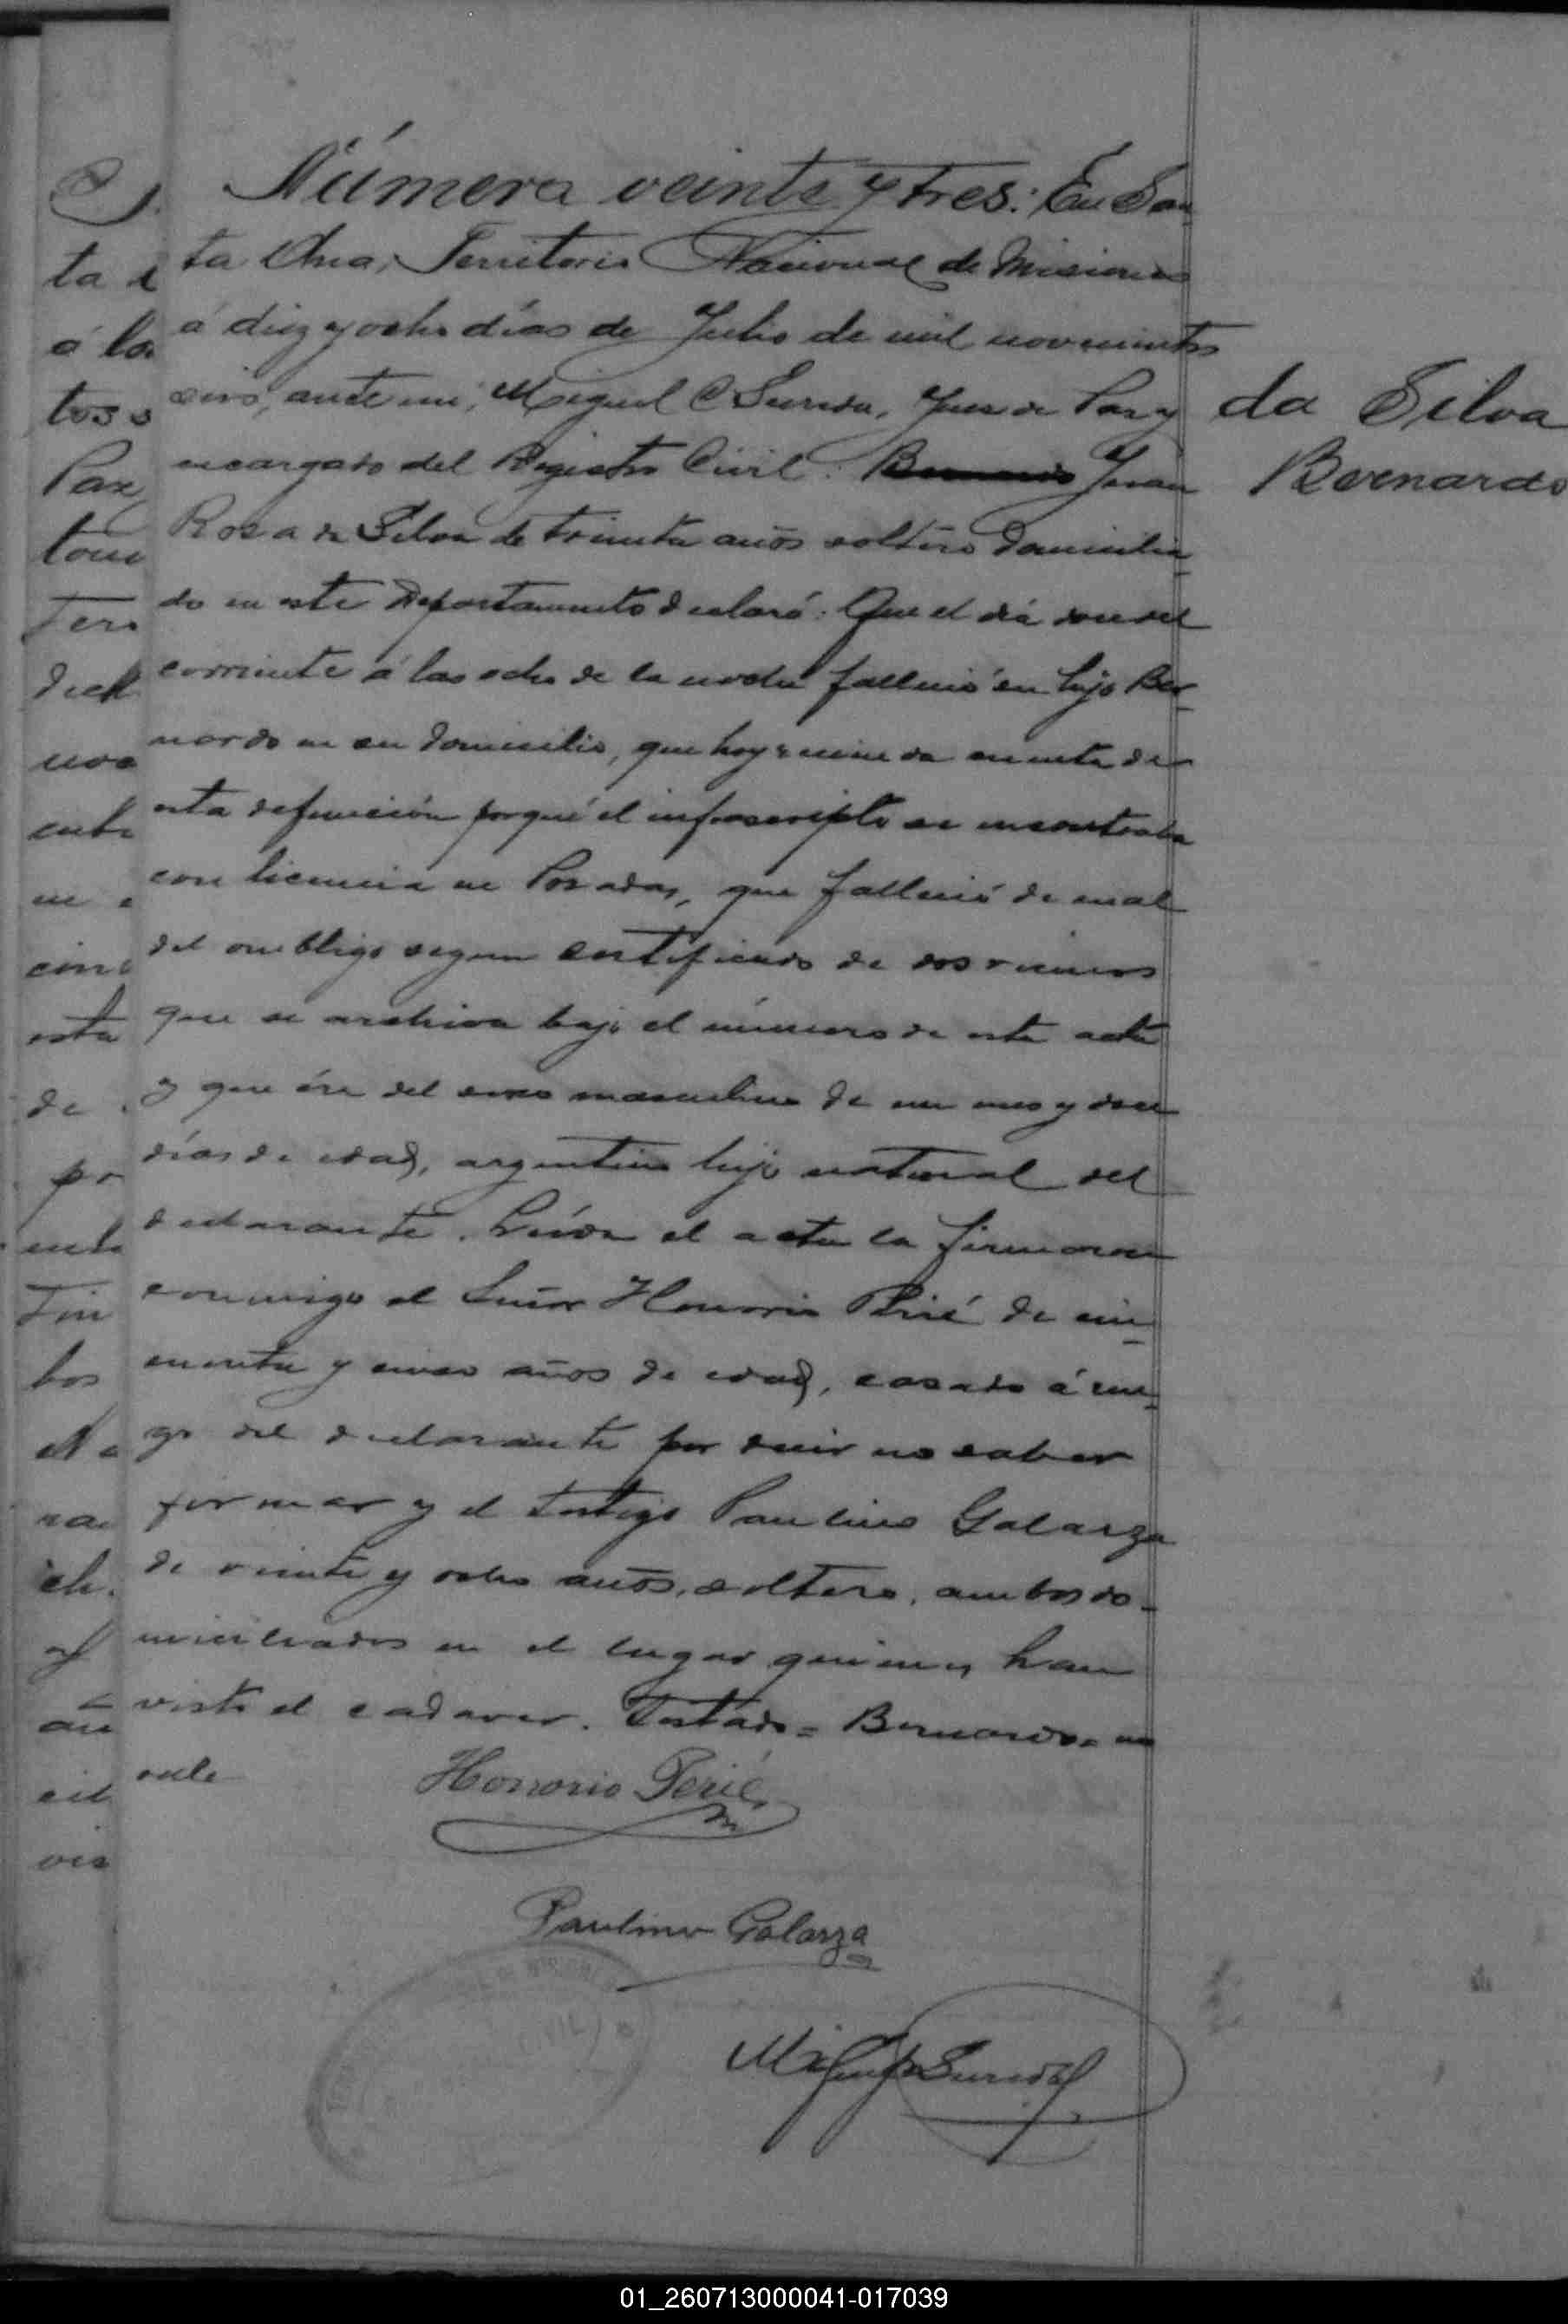 Número veinte y tres: En San
ta Ana, Territorio Nacional de Misiones
á diez y ocho días de Julio de mil novecientos
seis, ante mi, Miguel C Sureda, Juez de Paz y
encargado del Registro Civil: Bernardo Juan
Rosa da Silva de treinta años soltero domicilia-
do en este Departamento declaró: Que el dia doce del
corriente á las ocho de la noche falleció su hijo Ber-
nardo en su domicilio, que hoy viene da cuenta de
esta defunción porqué el infrascripto se encontraba
con licencia en Posadas, que falleció de mal
del ombligo segun certificado de dos vecinos
que se archiva bajo el número de esta acta
y que éra del sexo masculino de un mes y doce
días de edad, argentino hijo natural del
declarante. Leída el acta la firmaron
conmigo el Señor Honorio Perié de cin-
cuenta y cinco años de edad, casado á rue-
go del declarante por decir no saber
firmar y el testigo Paulino Galarza
de veinte y ocho años, soltero, ambos do-
miciliados en el lugar quienes han
visto el cadaver. Testado = Bernardo = no
vale
Honorio Perié
Paulino Galarza
Miguel C Sureda
da Silva
Bernardo
ta
á la
tos s
Paz
tom
Ter
nov
en
cinc
esta
de
por
Tin
los
Na
vis
01_260713000041-017039